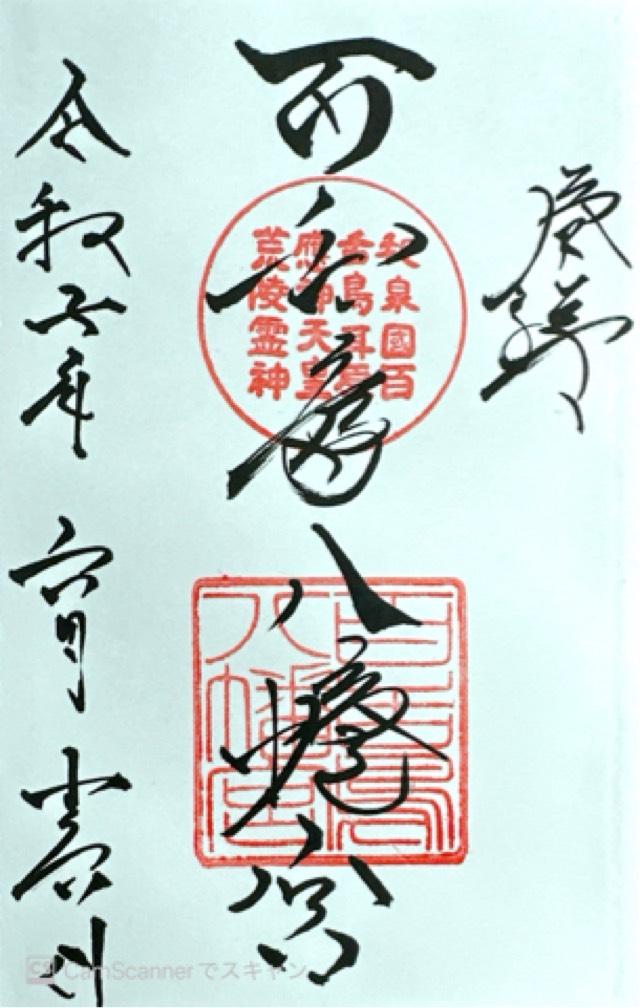 百舌鳥八幡宮
和泉國百
舌鳥耳原
應神天皇
荒陵霊神
百舌鳥
八幡宮
令和六年 六月
CS CamScannerでスキャン